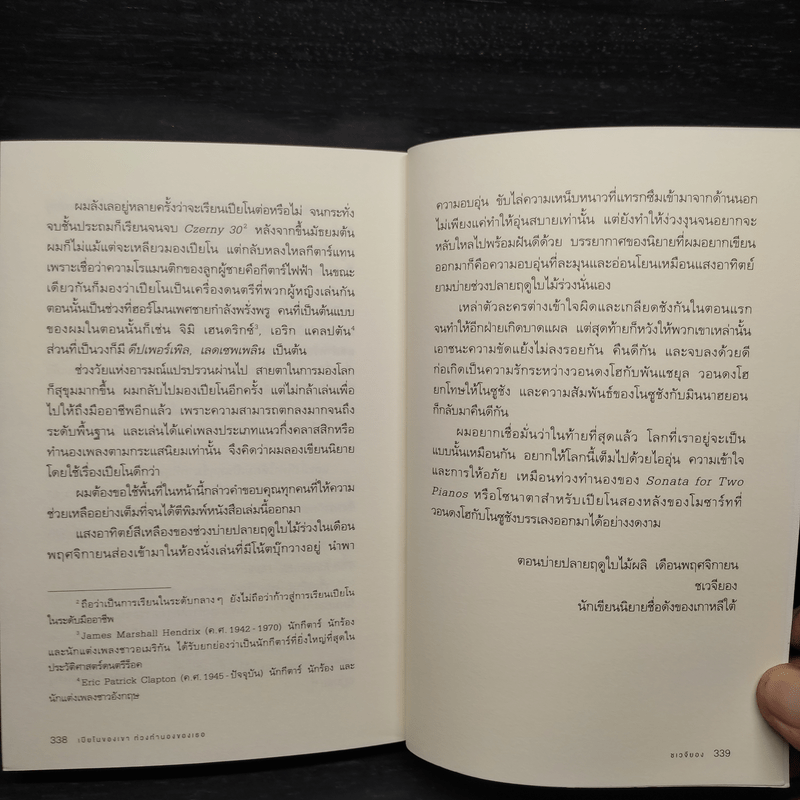 ผมลังเลอยู่หลายครั้งว่าจะเรียนเปียโนต่อหรือไม่ จนกระทั่ง
จบชั้นประถมก็เรียนจนจบ Czerny 30² หลังจากขึ้นมัธยมต้น
ผมก็ไม่แม้แต่จะเหลียวมองเปียโน แต่กลับหลงใหลกีตาร์แทน
เพราะเชื่อว่าความโรแมนติกของลูกผู้ชายคือกีตาร์ไฟฟ้า ในขณะ
เดียวกันก็มองว่าเปียโนเป็นเครื่องดนตรีที่พวกผู้หญิงเล่นกัน
ตอนนั้นเป็นช่วงที่ฮอร์โมนเพศชายกำลังพรั่งพรู คนที่เป็นต้นแบบ
ของผมในตอนนั้นก็เช่น จิมิ เฮนดริกซ์³, เอริก แคลปตัน⁴
ส่วนที่เป็นวงก็มี ดีปเพอร์เพิล, เลดเซพเพลิน เป็นต้น
ช่วงวัยแห่งอารมณ์แปรปรวนผ่านไป สายตาในการมองโลก
ก็สุขุมมากขึ้น ผมกลับไปมองเปียโนอีกครั้ง แต่ไม่กล้าเล่นเพื่อ
ไปให้ถึงมืออาชีพอีกแล้ว เพราะความสามารถตกลงมากจนถึง
ระดับพื้นฐาน และเล่นได้แค่เพลงประเภทแนวกึ่งคลาสสิกหรือ
ทำนองเพลงตามกระแสนิยมเท่านั้น จึงคิดว่าผมลองเขียนนิยาย
โดยใช้เรื่องเปียโนดีกว่า
ผมต้องขอใช้พื้นที่ในหน้านี้กล่าวคำขอบคุณทุกคนที่ให้ความ
ช่วยเหลืออย่างเต็มที่จนได้ตีพิมพ์หนังสือเล่มนี้ออกมา
แสงอาทิตย์สีเหลืองของช่วงบ่ายปลายฤดูใบไม้ร่วงในเดือน
พฤศจิกายนส่องเข้ามาในห้องนั่งเล่นที่มีโน้ตบุ๊กวางอยู่ นำพา
² ถือว่าเป็นการเรียนในระดับกลางๆ ยังไม่ถือว่าก้าวสู่การเรียนเปียโน
ในระดับมืออาชีพ
³ James Marshall Hendrix (ค.ศ. 1942-1970) นักกีตาร์ นักร้อง
และนักแต่งเพลงชาวอเมริกัน ได้รับยกย่องว่าเป็นนักกีตาร์ที่ยิ่งใหญ่ที่สุดใน
ประวัติศาสตร์ดนตรีร็อค
⁴ Eric Patrick Clapton (ค.ศ. 1945-ปัจจุบัน) นักกีตาร์ นักร้อง และ
นักแต่งเพลงชาวอังกฤษ
338 เปียโนของเขา ท่วงทำนองของเธอ
ความอบอุ่น ขับไล่ความเหน็บหนาวที่แทรกซึมเข้ามาจากด้านนอก
ไม่เพียงแค่ทำให้อุ่นสบายเท่านั้น แต่ยังทำให้ง่วงงุนจนอยากจะ
หลับใหลไปพร้อมฝันดีด้วย บรรยากาศของนิยายที่ผมอยากเขียน
ออกมาก็คือความอบอุ่นที่ละมุนและอ่อนโยนเหมือนแสงอาทิตย์
ยามบ่ายช่วงปลายฤดูใบไม้ร่วงนั่นเอง
เหล่าตัวละครต่างเข้าใจผิดและเกลียดชังกันในตอนแรก
จนทำให้อีกฝ่ายเกิดบาดแผล แต่สุดท้ายก็หวังให้พวกเขาเหล่านั้น
เอาชนะความขัดแย้งไม่ลงรอยกัน คืนดีกัน และจบลงด้วยดี
ก่อเกิดเป็นความรักระหว่างวอนดงโฮกับพันแชยุล วอนดงโฮ
ยกโทษให้โนซูชัง และความสัมพันธ์ของโนซูชังกับมินนาฮยอน
ก็กลับมาคืนดีกัน
ผมอยากเชื่อมั่นว่าในท้ายที่สุดแล้ว โลกที่เราอยู่จะเป็น
แบบนั้นเหมือนกัน อยากให้โลกนี้เต็มไปด้วยไออุ่น ความเข้าใจ
และการให้อภัย เหมือนท่วงทำนองของ Sonata for Two
Pianos หรือโซนาตาสำหรับเปียโนสองหลังของโมซาร์ทที่
วอนดงโฮกับโนซูชังบรรเลงออกมาได้อย่างงดงาม
ตอนบ่ายปลายฤดูใบไม้ผลิ เดือนพฤศจิกายน
ชเวจียอง
นักเขียนนิยายชื่อดังของเกาหลีใต้
ชเวจียอง 339